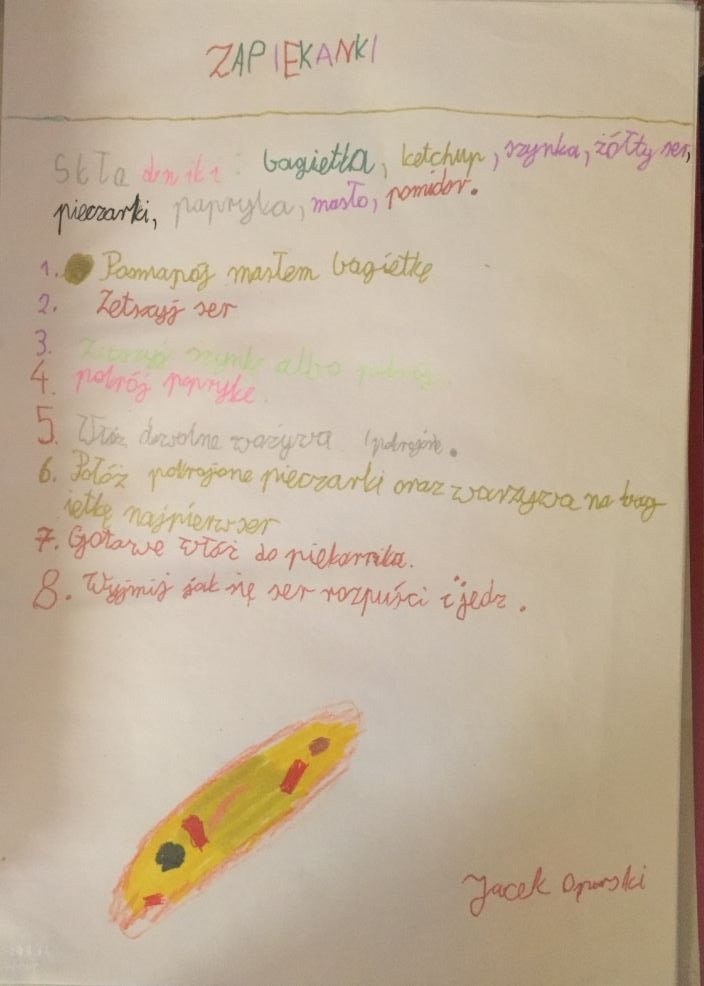 ZAPIEKANKI
Składniki: bagietka, ketchup, szynka, żółty ser,
pieczarki, papryka, masło, pomidor.
1. Posmaruj masłem bagietkę
2. Zetszyj ser
3. Zetszyj szynkę albo pokrój
4. pokrój paprykę
5. Włóż dowolne ważywa (pokrojone.
6. Połóż pokrojone pieczarki oraz warzywa na bag
ietkę najpierw ser
7. Gotowe włóż do piekarnika.
8. Wyjmij jak się ser rozpuści i jedz.
Jacek